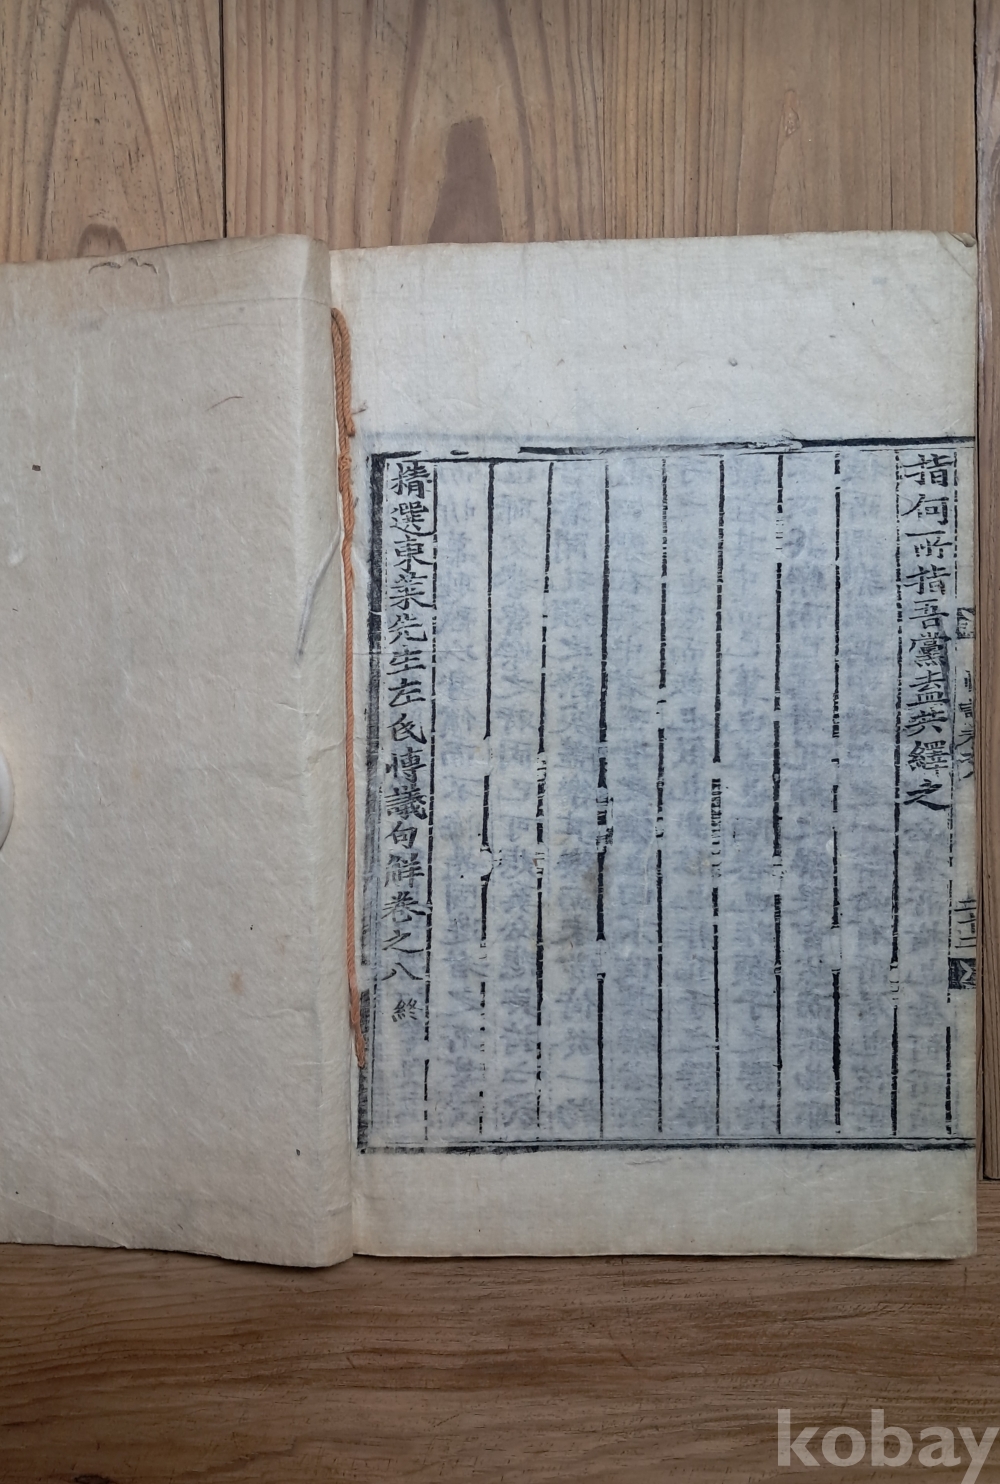 指何所指吾黨盍共繹之
精選東萊先生左氏博議句解卷之八 終
kobay